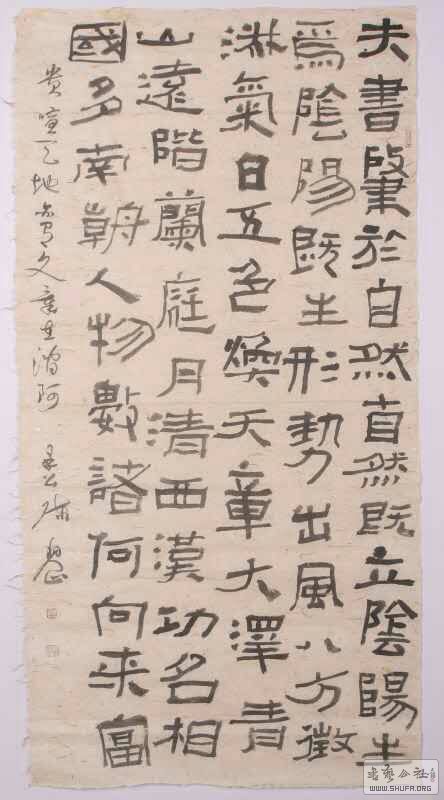 夫書肇於自然自然既立陰陽生
焉陰陽既生形勢出風八方徵
淋氣日五色煥天章大澤青
山遠階蘭庭月清西漢功名相
國多南朝人物數諸何向来富
貴喧天地文章
書藝公社
WWW.SHUFA.ORG